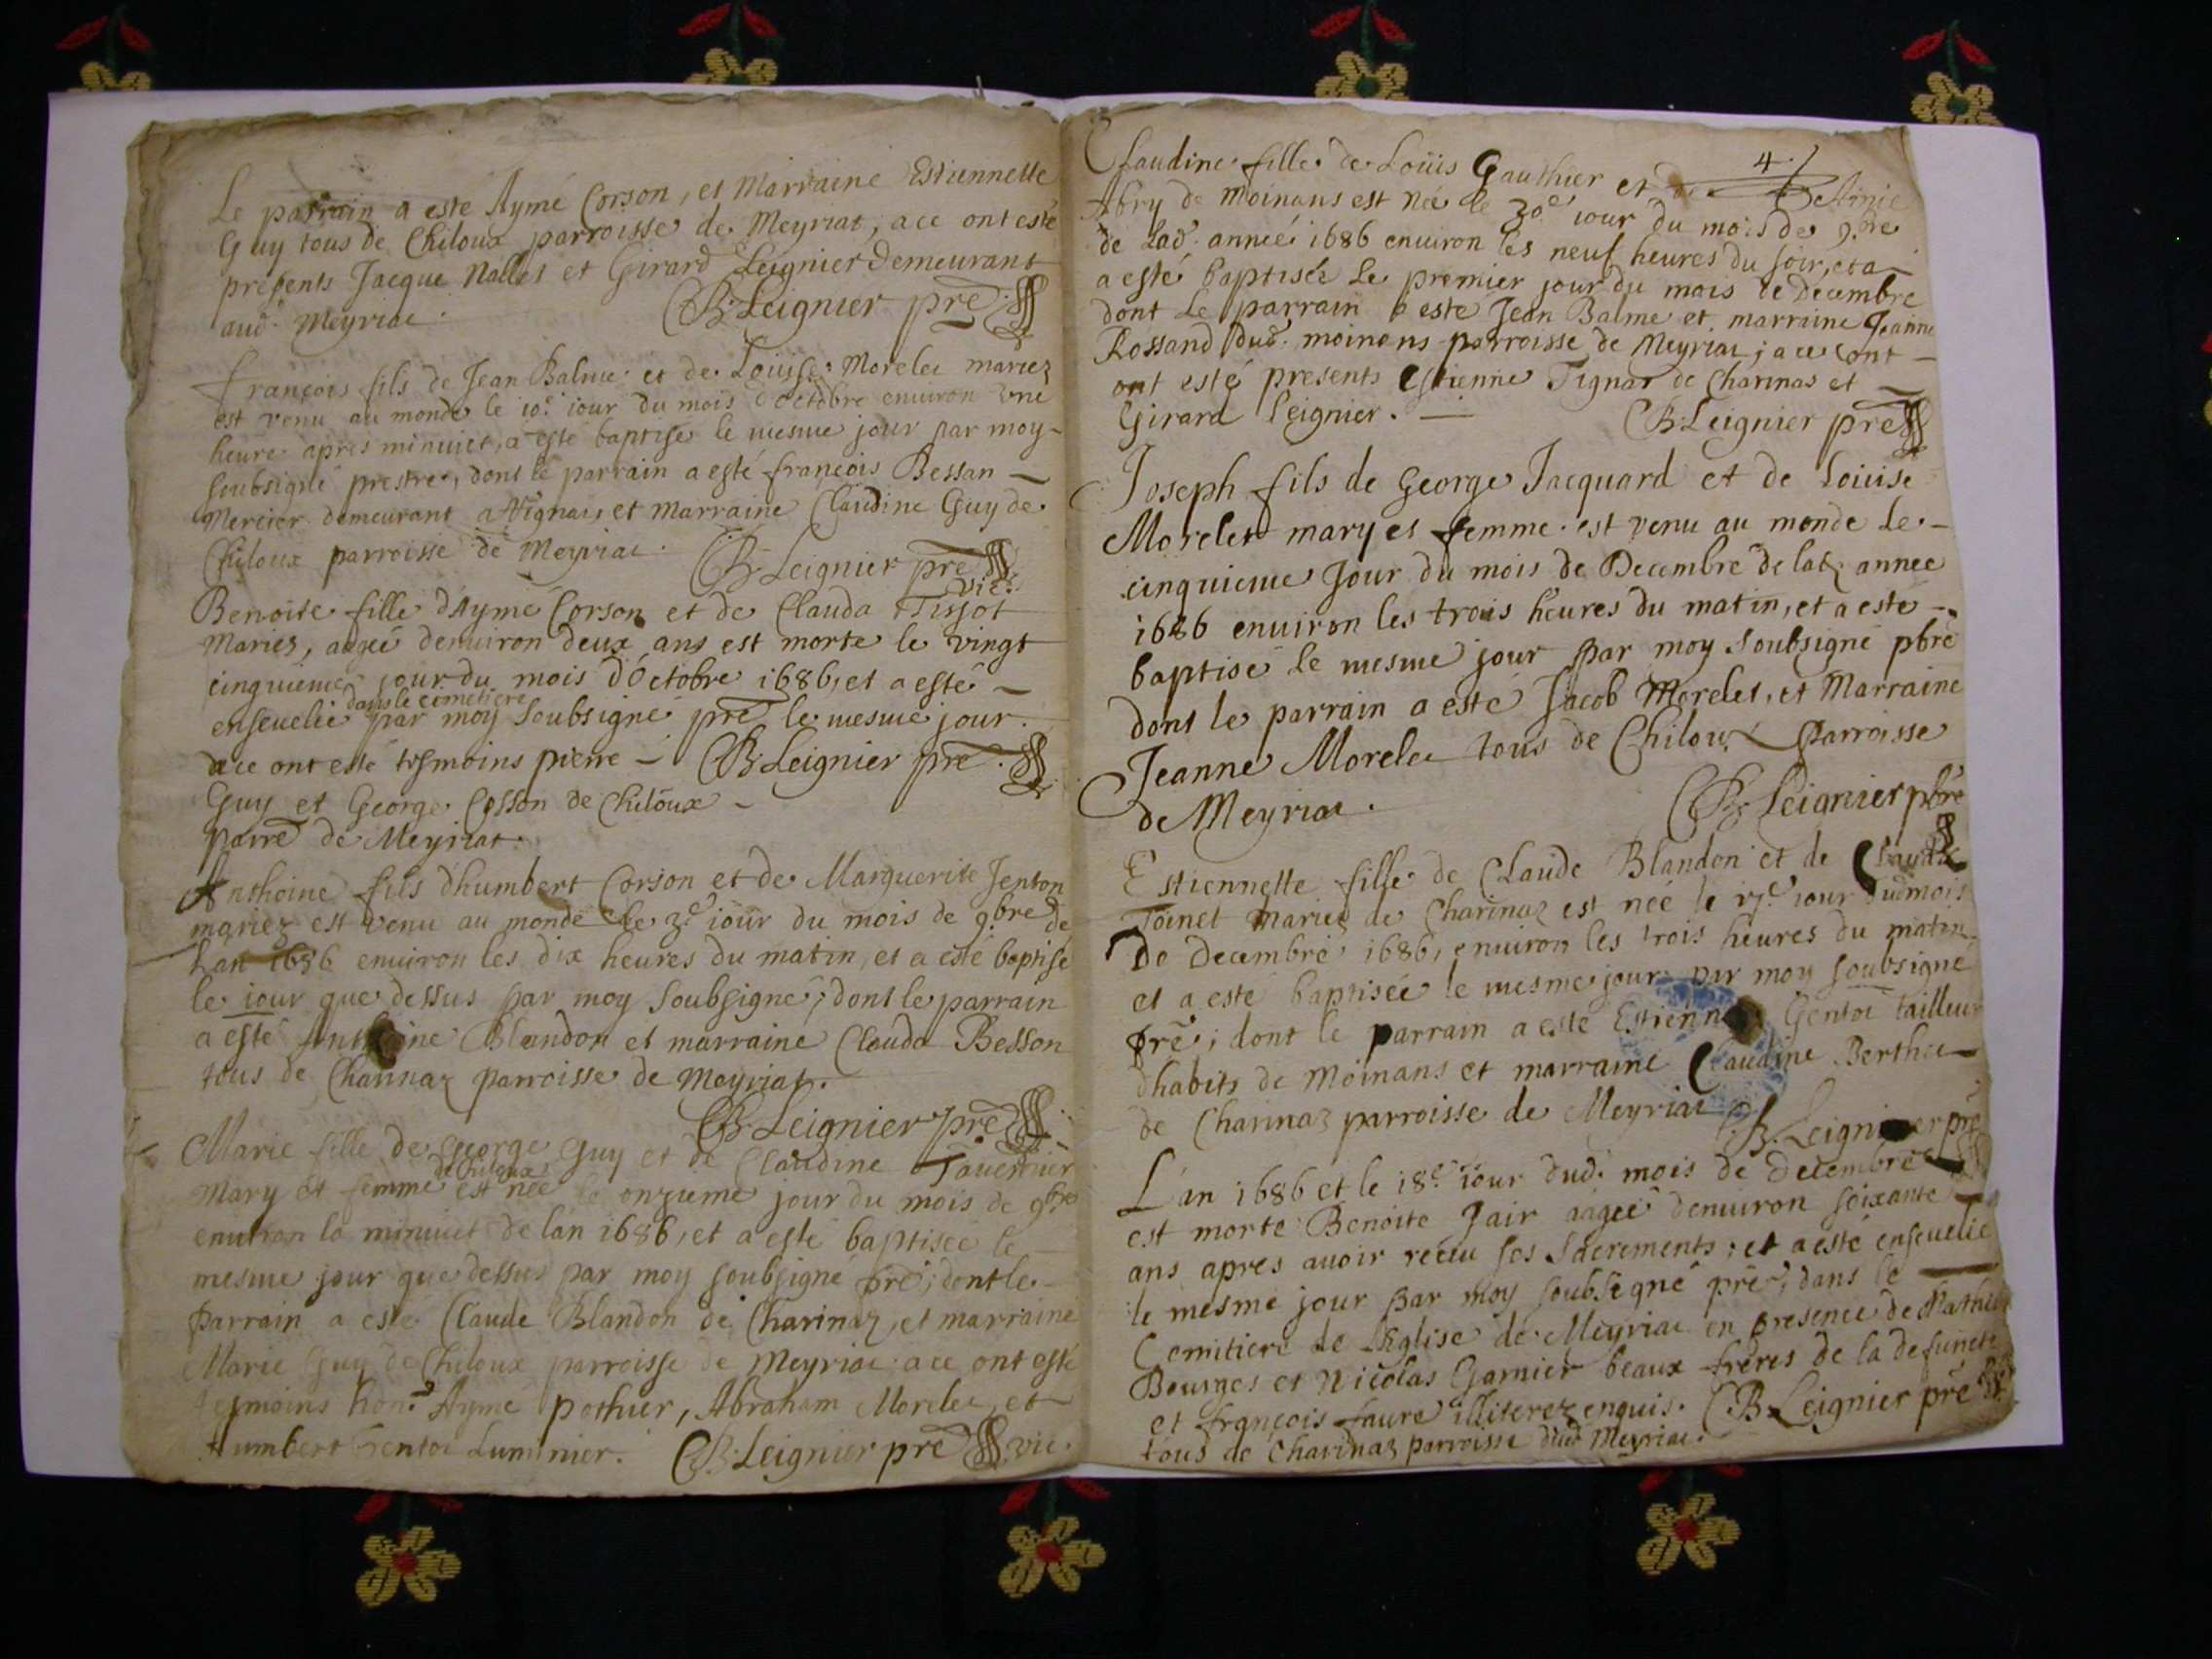 Le parrain a esté Aymé Corson, et Marraine Estiennette
Guy tous de Chiloux parroisse de Meyriat, a ce ont esté
presents Jacque Nallet et Girard Leignier Demeurant
aud. Meyriac. B. Leignier pre.
françois fils de Jean Balme et de Louisse Morelet mariez
est venu au monde le 10e iour du mois d'octobre enuiron une
heure apres minuict, a esté baptisé le mesme jour par moy
soubsigné prestre, dont le parrain a esté françois Bessan
Mercier demeurant a et Marraine Claudine Guy de
Chiloux parroisse de Meyriac. B. Leignier pre vic.
Benoite fille d'Aymé Corson et de Clauda Tissot
Mariez, aagée denuiron deux ans est morte le vingt
cinquieme jour du mois d'Octobre 1686, et a esté
dans le cimetiere
enseuelie par moy Soubsigné pre le mesme jour.
a ce ont esté tesmoins pierre B. Leignier pre.
Guy et George Cosson de Chiloux
parre de Meyriat.
Anthoine fils d'humbert Corson et de Marguerite Jenton
mariez est venu au monde le 3e iour du mois de 9.bre de
Lan 1686 enuiron les dix heures du matin, et a esté baptisé
le iour que dessus par moy Soubsigné; dont le parrain
a esté Anthoine Blandon et marraine Clauda Besson
tous de Charinaz parroisse de Meyriat.
B. Leignier pre
Marie fille de George Guy et de Claudine Tauernier
de Chiloux
Mary et femme est née le onzieme jour du mois de 9bre
enuiron la minuict de lan 1686, et a esté baptisée le
mesme jour que dessus par moy soubsigné pre; dont le
parrain a esté Claude Blandon de Charinaz, et marraine
Marie Guy de Chiloux parroisse de Meyriac a ce ont esté
tesmoins hon. Aymé pothier, Abraham Morelet, et
humbert Gentoi Luminier. B. Leignier pre vic.
4
Claudine fille de Louis Gauthier et de
Abry de Moinans est née le 30e iour du mois de 9.bre
de Lad. année 1686 enuiron les neuf heures du soir, et a
a esté baptisée le premier jour du mois de decembre
dont le parrain a esté Jean Balme et marraine Jeanne
Rossand dud. moinans parroisse de Meyriac; a ce sont
ont estés presents Estienne Tignat de Charinas et
Girard leignier. B. Leignier pre
Joseph fils de George Jacquard et de Louise
Morelet mary et femme est venu au monde le
cinquieme Jour du mois de Decembre de lad. annee
1686 enuiron les trois heures du matin, et a esté
baptisé le mesme jour par moy Soubsigné pbre
dont le parrain a esté Jacob Morelet, et Marraine
Jeanne Morelet tous de Chiloux Parroisse
de Meyriac. B. Leignier pbre
Estiennette fille de Claude Blandon et de Clauda
Joinet Mariez de Charinaz est née le 17e iour du mois
De Decembre 1686, enuiron les trois heures du matin
et a esté baptisée le mesme jour par moy soubsigné
pre; dont le parrain a esté Estienne Gentoi tailleur
dhabits de Moinans et marraine Claudine Berthet
de Charinaz parroisse de Meyriac B. Leignier pre
L'an 1686 et le 18e iour dud. mois de decembre
est morte Benoite Jair aagée denuiron soixante
ans apres auoir receu ses Sacrements; et a esté enseuelie
le mesme jour par moy soubsigné pre, dans le
Cemitiere de Leglise de Meyriac en presence de Mathieu
Bourges et Nicolas Garnier beaux freres de la defuncte
et françois faure illiterez enquis. B. Leignier pre
tous de Charinaz parroisse dud. Meyriac.